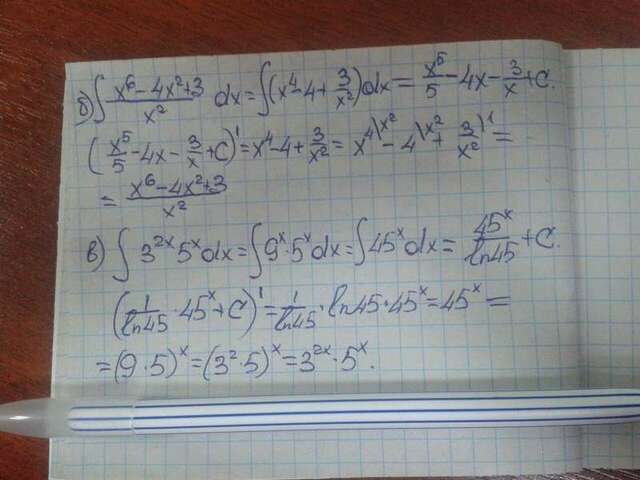 б) ∫ (x⁶ - 4x² + 3)/x² dx = ∫(x⁴ - 4 + 3/x²)dx = x⁵/5 - 4x - 3/x + C.
(x⁵/5 - 4x - 3/x + C)' = x⁴ - 4 + 3/x² = x⁴\x² - 4\x² + 3/x²\1 =
= (x⁶ - 4x² + 3)/x²
в) ∫ 3²ˣ 5ˣ dx = ∫ 9ˣ · 5ˣ dx = ∫ 45ˣ dx = 45ˣ/ln45 + C.
(1/ln45 · 45ˣ + C)' = 1/ln45 · ln45 · 45ˣ = 45ˣ =
= (9 · 5)ˣ = (3² · 5)ˣ = 3²ˣ · 5ˣ.